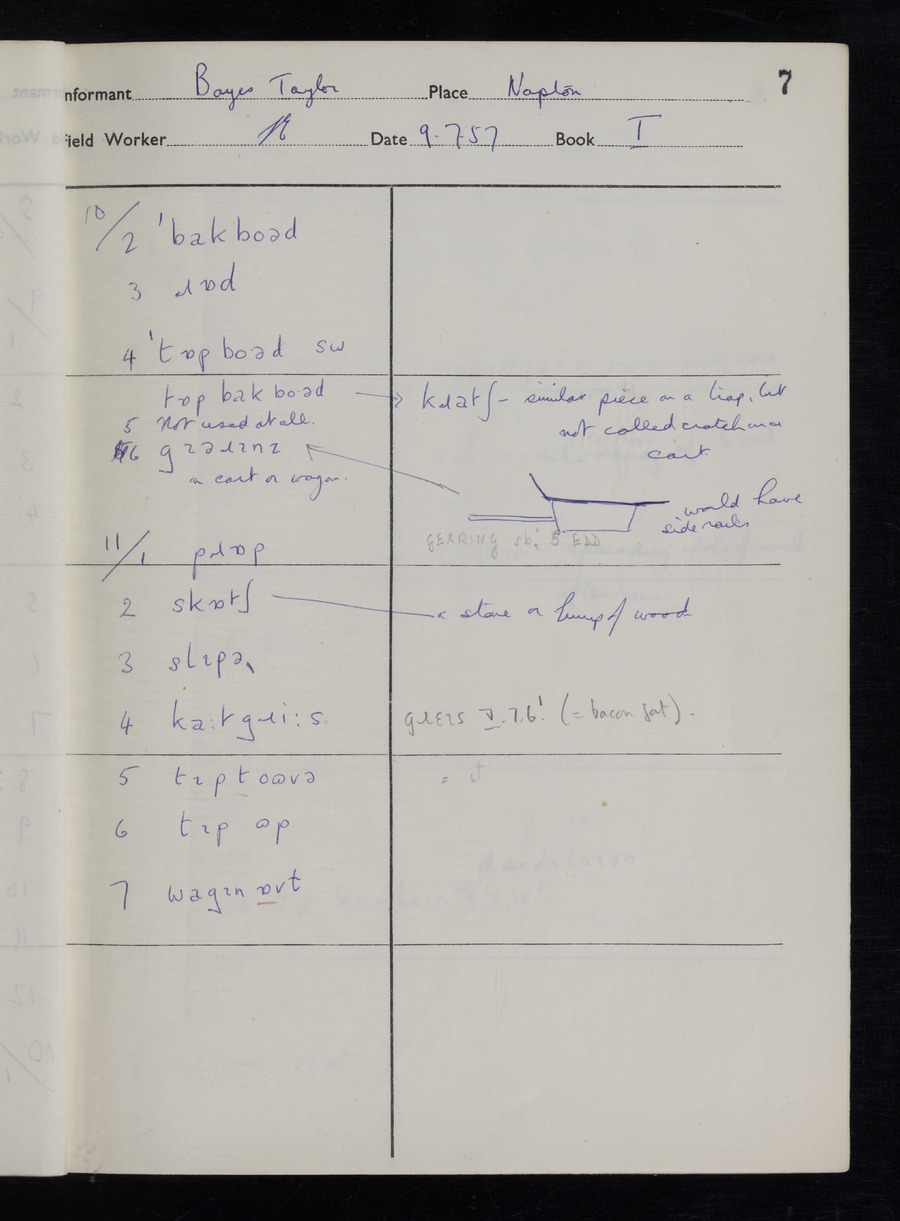 7
Informant Bayes Taylor Place Napton
Field Worker Date 9.7.57 Book I
10/2 ˈbakboəd
3 ɹɒd
4 ˈtɒpboəd sw
tɒp bakboəd → kɹatʃ – similar piece on a trap, but
not called cratch on a
cart
5 Not used at all.
6 gɪəɹɪnz
on cart or wagon.
would have
side rails
GEARING sb.¹ 5 EDD
11/1 pɹɒp
2 skɒtʃ — a stone or lump of wood
3 slɪpə
4 ka:tgɹi:s gɹɛɪs V.7.6! (= bacon fat).
5 tɪp t oʊvə = it
6 tɪp ʊp
7 wagɪn ɒvt